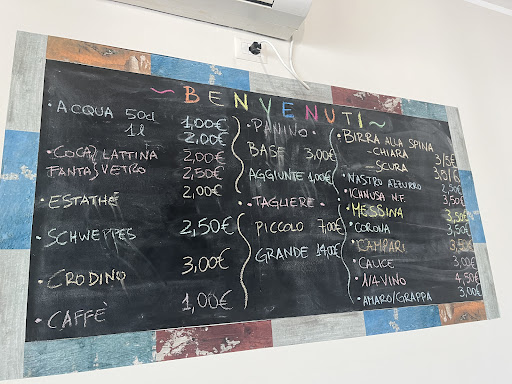 ~ BENVENUTI ~
· ACQUA 50cl 1,00€
1l 2,00€
· COCA) LATTINA 2,00€
FANTA) VETRO 2,50€
· ESTATHÉ 2,00€
· SCHWEPPES 2,50€
· CRODINO 3,00€
· CAFFÈ 1,00€
· PANINO ·
BASE 3,00€
AGGIUNTE 1,00€
· TAGLIERE ·
PICCOLO 7,00€
GRANDE 14,00€
· BIRRA ALLA SPINA
CHIARA 3/5€
SCURA
· NASTRO AZZURRO 2,50€
· ICHNUSA N.F. 3,50€
· MESSINA 3,50€
· CORONA 3,50€
· CAMPARI 3,50€
· CALICE 3,00€
· 1/4 VINO 4,50€
· AMARO/GRAPPA 3,00€